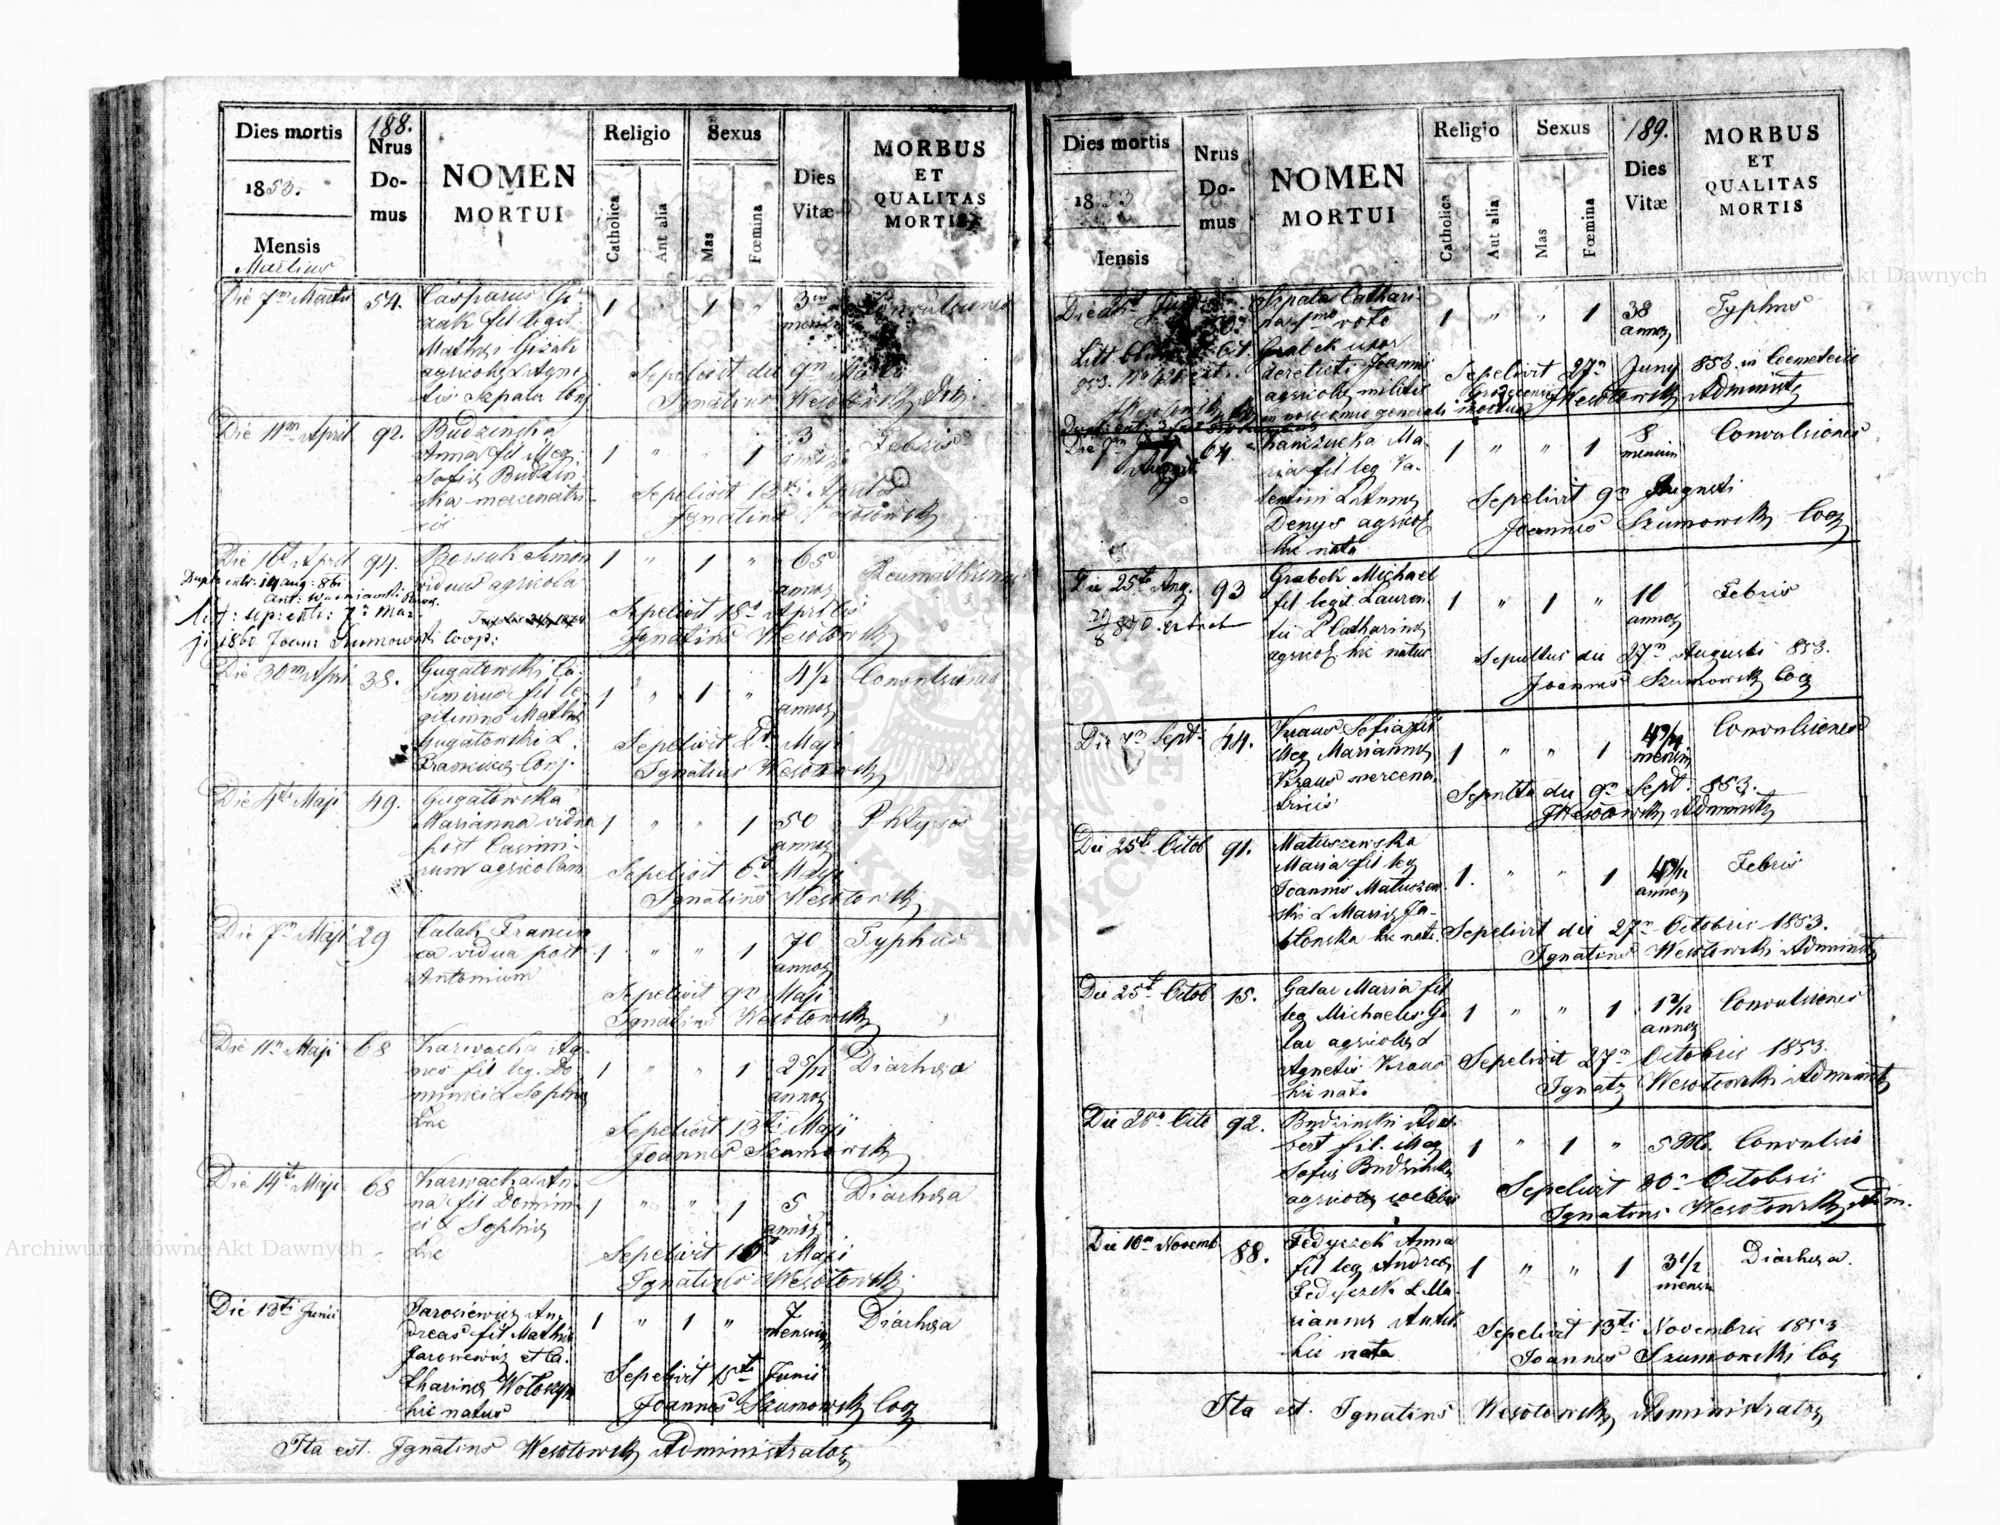 188.
Dies mortis
1853.
Mensis
Martius
Nrus
Do-
mus
NOMEN
MORTUI
Religio
Catholica
Aut alia
Sexus
Mas
Fœmina
Dies
Vitæ
MORBUS
ET
QUALITAS
MORTIS
Die 7ma Martii 54. Casparus Gi-
zak fil legit
Mathei Gizak
agricolæ & Agne-
tis Szpala Conj
1 " 1 " 3
mens
Convulsiones
Sepelivit die 9na Martii
Ignatius Wesołowski
Die 11ma April 92. Budzinska
Anna fil illeg
Sofiæ Budzin-
ska mercenatri-
cis
1 " " 1 3
annor
Febris
Sepelivit 13ti Aprilis
Ignatius Wesołowski
Die 16ta April 94. Borsuk Simon
viduus agricola
1 " 1 " 65
annor
Reumathismus
Sepelivit 18a Aprilis
Ignatius Wesołowski
Die 30ma April 38. Gugatowski Ca-
simirus fil le-
gitimus Mathei
Gugatowski &
Franciscæ Conj.
1 " 1 " 4 1/2
annor
Convulsiones
Sepelivit 2da Maji
Ignatius Wesołowski
Die 4ta Maji 49. Gugatowska
Marianna vidua
post Casimi-
rum agricolam
1 " " 1 50
annor
Phtysis
Sepelivit 6ta Maji
Ignatius Wesołowski
Die 7ma Maji 29 Calak Francis-
ca vidua post
Antonium
1 " " 1 70
annor
Typhus
Sepelivit 9na Maji
Ignatius Wesołowski
Die 11ma Maji 68 Karwacka Ag-
nes fil leg. Do-
minici & Sophiæ
1 " " 1 2 5/12
annor
Diarhea
Sepelivit 13ti Maji
Joannes Szumowski
Die 14ta Maji 68 Karwacka An-
na fil Domini-
ci & Sophiæ
1 " " 1 5
annor
Diarhea
Sepelivit 16ta Maji
Ignatius Wesołowski
Die 13ti Junii Jarosiewicz An-
dreas fil Mathei
Jarosiewicz et Ca-
tharinæ Wołoszyn
hic natus
1 " 1 " 7
mensium
Diarhea
Sepelivit 15ta Junii
Joannes Szumowski Coop
Ita est. Ignatius Wesołowski Administrator
189.
Dies mortis
1853
Mensis
Nrus
Do-
mus
NOMEN
MORTUI
Religio
Catholica
Aut alia
Sexus
Mas
Fœmina
Dies
Vitæ
MORBUS
ET
QUALITAS
MORTIS
Szpala Cathari-
na voto
Grabek uxor
derelicti Joannis
agricolæ militis
1 " " 1 38
annor
Typhus
Sepelivit 27a Juny 853 in Coemeterio
Wesołowski Administr
August 64. Ma-
ria fil leg Va-
lentini & Annæ
Denys agricol
hic nata
1 " " 1 8
mensium
Convulsiones
Sepelivit 9na Augusti
Joannes Szumowski Coop
Die 25ta Aug. 93 Grabek Michael
fil legit Lauren-
tii & Catharinæ
agricol. hic natus
1 " 1 " 10
annor
Febris
Sepultus die 27ma Augusti 853.
Joannes Szumowski Coop
Die 7ma Sept. 44. Kraus Sofia fil
illeg Mariannæ
Kraus mercena-
tricis
1 " " 1
mensium
Convulsiones
Sepulta die 9na Sept. 853.
Wesołowski Administr
Die 25ta Octob 91. Matuszewska
Maria fil leg
Joannis Matuszew-
ski & Mariæ Ja-
błonska hic nata.
1. " " 1
annor
Febris
Sepelivit die 27ma Octobris 1853.
Ignatius Wesołowski Administr
Die 25ta Octob 15. Galar Maria fil
leg Michaelis Ga-
lar agricolæ &
Agnetis Kraus
hic nata
1 " " 1 1 2/12
annor
Convulsiones
Sepelivit 27a Octobris 1853.
Ignatz Wesołowski Administr
Die 28va Octo 92. Budzinski Adal-
bert fil. illeg
Sofiæ Budzinska
agricolæ coelibis
1 " 1 " 5 Mo. Convulsio
Sepelivit 30a Octobris
Ignatius Wesołowski Adm.
Die 10ma Novemb 88. Fedyczek Anna
fil leg Andreæ
Fedyczek & Ma-
riannæ
hic nata
1 " " 1 3 1/2
mensi
Diarhea.
Sepelivit 13ti Novembris 1853
Joannes Szumowski Coop
Ita est. Ignatius Wesołowski Administrator
Archiwum Główne Akt Dawnych
Archiwum Główne Akt Dawnych